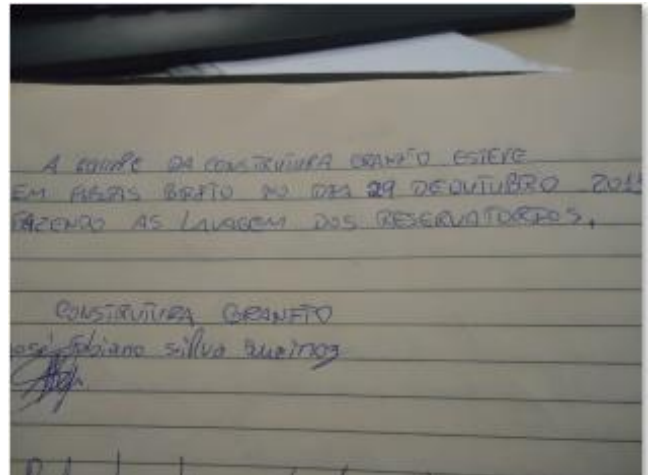 A EQUIPE DA CONSTRUTURA GRANITO ESTEVE
EM BRITO NO DIA 29 DE OUTUBRO
FAZENDO AS LAVAGEM DOS RESERVATORIOS.
CONSTRUTURA GRANITO
José Fabiano Sillva